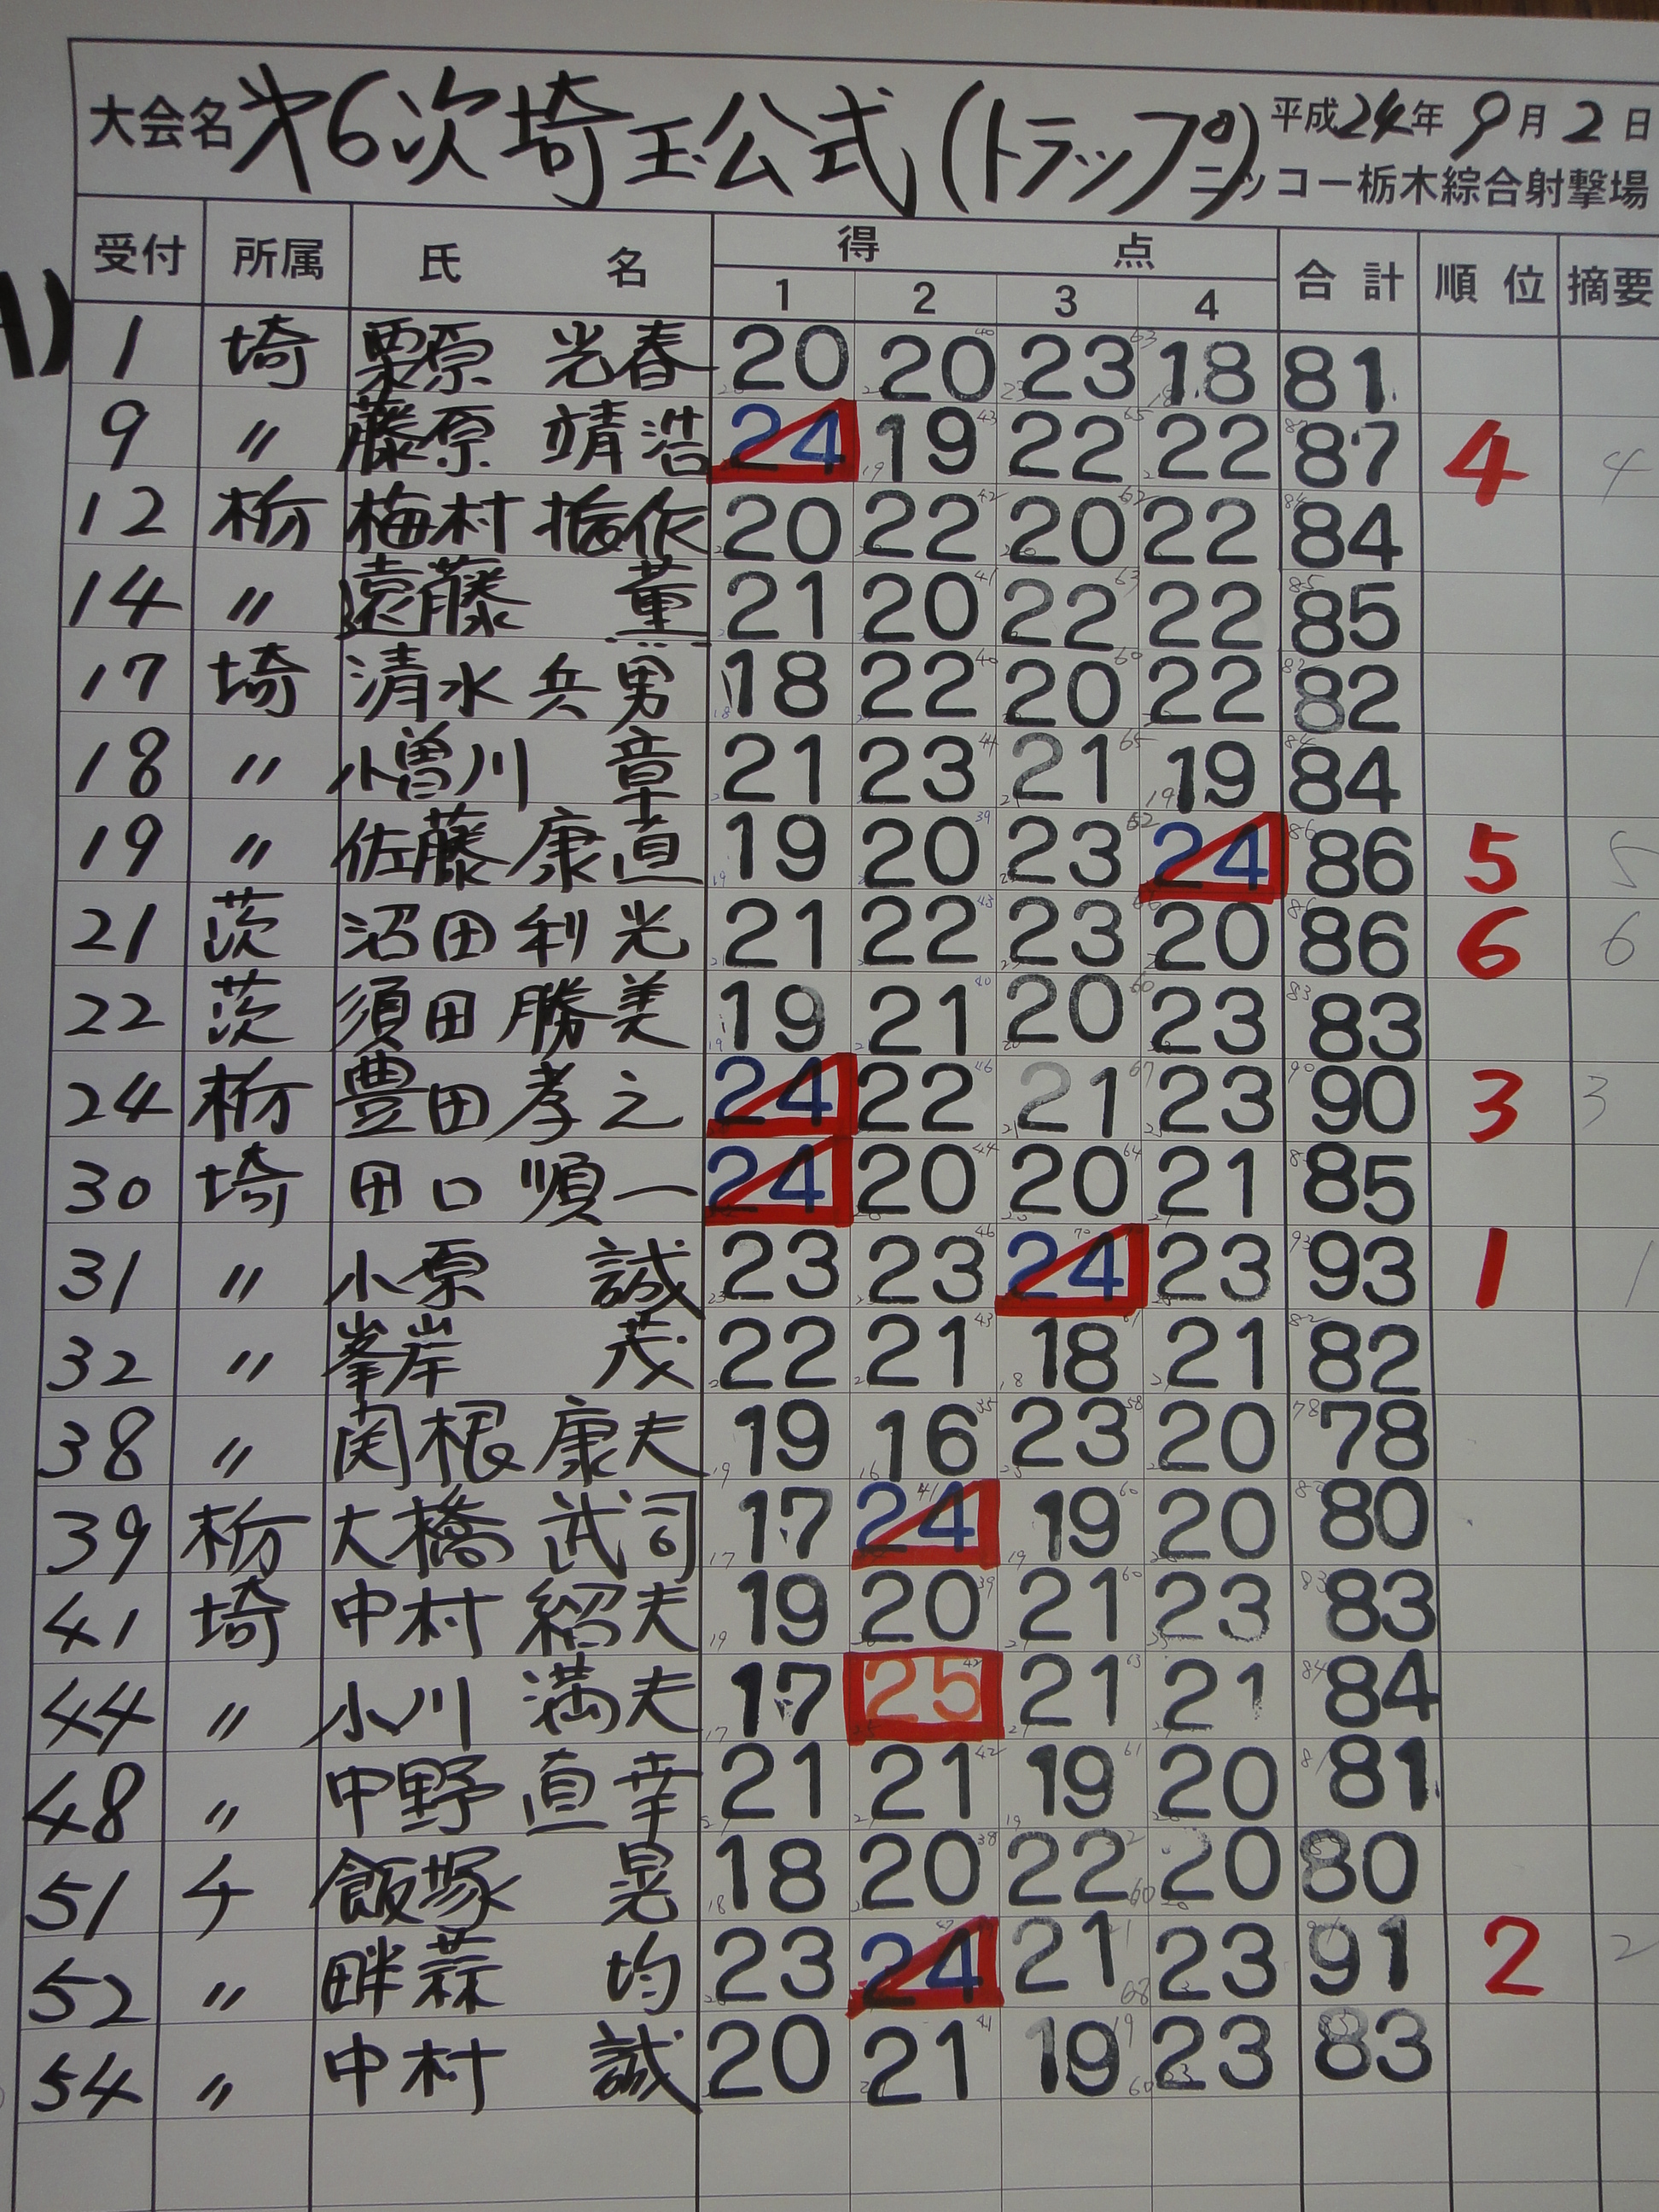 大会名 第6次埼玉公式(トラップ) 平成24年9月2日
ニッコー栃木綜合射撃場
受付 所属 氏名 得点 合計 順位 摘要
1 2 3 4
1 埼 栗原 光春 20 20 23 18 81
9 〃 藤原 靖浩 24 19 22 22 87 4 4
12 栃 梅村 20 22 20 22 84
14 〃 遠藤 薫 21 20 22 22 85
17 埼 清水 兵男 18 22 20 22 82
18 〃 小曽川 章 21 23 21 19 84
19 〃 佐藤 康直 19 20 23 24 86 5 5
21 茨 沼田 利光 21 22 23 20 86 6 6
22 茨 須田 勝美 19 21 20 23 83
24 栃 豊田 孝之 24 22 21 23 90 3 3
30 埼 田口 順一 24 20 20 21 85
31 〃 小原 誠 23 23 24 23 93 1 1
32 〃 峯岸 茂 22 21 18 21 82
38 〃 関根 康夫 19 16 23 20 78
39 栃 大橋 武司 17 24 19 20 80
41 埼 中村 紹夫 19 20 21 23 83
44 〃 小川 満夫 17 25 21 21 84
48 〃 中野 直幸 21 21 19 20 81
51 チ 飯塚 晃 18 20 22 20 80
52 〃 畔蒜 均 23 24 21 23 91 2 2
54 〃 中村 誠 20 21 19 23 83